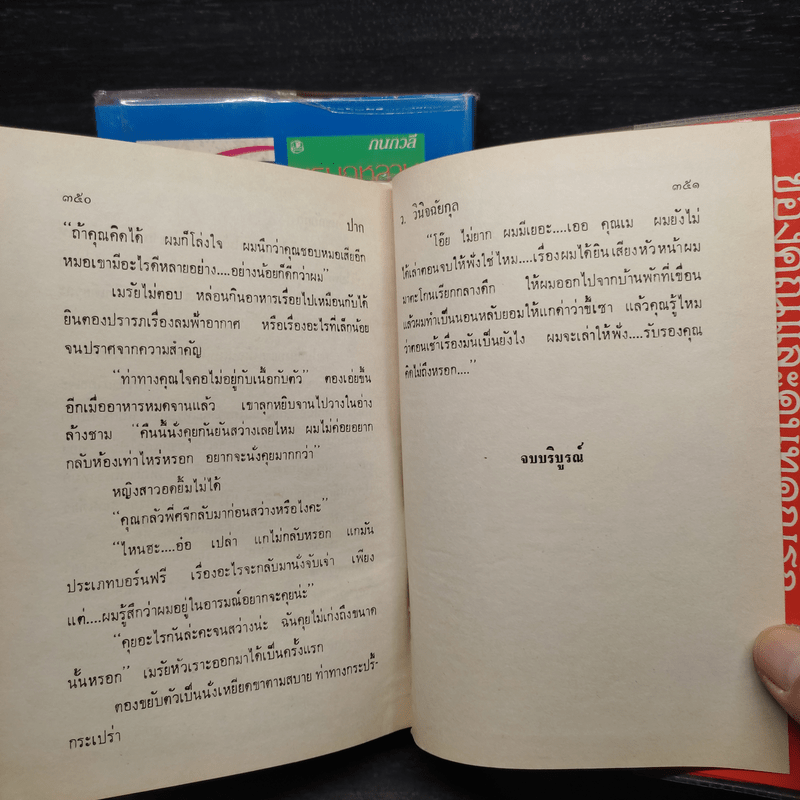 กนกวลี
๓๕๐
ปาก
“ถ้าคุณคิดได้ ผมก็โล่งใจ ผมนึกว่าคุณชอบหมอเสียอีก
หมอเขามีอะไรดีหลายอย่าง....อย่างน้อยก็ดีกว่าผม”
เมรัยไม่ตอบ หล่อนกินอาหารเรื่อยไปเหมือนกับได้
ยินตองปรารภเรื่องลมฟ้าอากาศ หรือเรื่องอะไรที่เล็กน้อย
จนปราศจากความสำคัญ
“ท่าทางคุณใจคอไม่อยู่กับเนื้อกับตัว” ตองเอ่ยขึ้น
อีกเมื่ออาหารหมดจานแล้ว เขาลุกหยิบจานไปวางในอ่าง
ล้างชาม “คืนนี้นั่งคุยกันยันสว่างเลยไหม ผมไม่ค่อยอยาก
กลับห้องเท่าไหร่หรอก อยากจะนั่งคุยมากกว่า”
หญิงสาวอดยิ้มไม่ได้
“คุณกลัวพี่ศจีกลับมาก่อนสว่างหรือไงคะ”
“ไหนฮะ....อ๋อ เปล่า แกไม่กลับหรอก แกมัน
ประเภทบอร์นฟรี เรื่องอะไรจะกลับมานั่งจับเจ่า เพียง
แต่....ผมรู้สึกว่าผมอยู่ในอารมณ์อยากจะคุยน่ะ”
“คุยอะไรกันล่ะคะจนสว่างน่ะ ฉันคุยไม่เก่งถึงขนาด
นั้นหรอก” เมรัยหัวเราะออกมาได้เป็นครั้งแรก
ตองขยับตัวเป็นนั่งเหยียดขาตามสบาย ท่าทางกระปรี้-
กระเปร่า
ว. วินิจฉัยกุล
๓๕๑
“โอ๊ย ไม่ยาก ผมมีเยอะ....เออ คุณเม ผมยังไม่
ได้เล่าตอนจบให้ฟังใช่ไหม....เรื่องผมได้ยินเสียงหัวหน้าผม
มาตะโกนเรียกกลางดึก ให้ผมออกไปจากบ้านพักที่เขื่อน
แล้วผมทำเป็นนอนหลับยอมให้แกด่าว่าขี้เซา แล้วคุณรู้ไหม
ว่าตอนเช้าเรื่องมันเป็นยังไง ผมจะเล่าให้ฟัง....รับรองคุณ
คิดไม่ถึงหรอก....”
จบบริบูรณ์